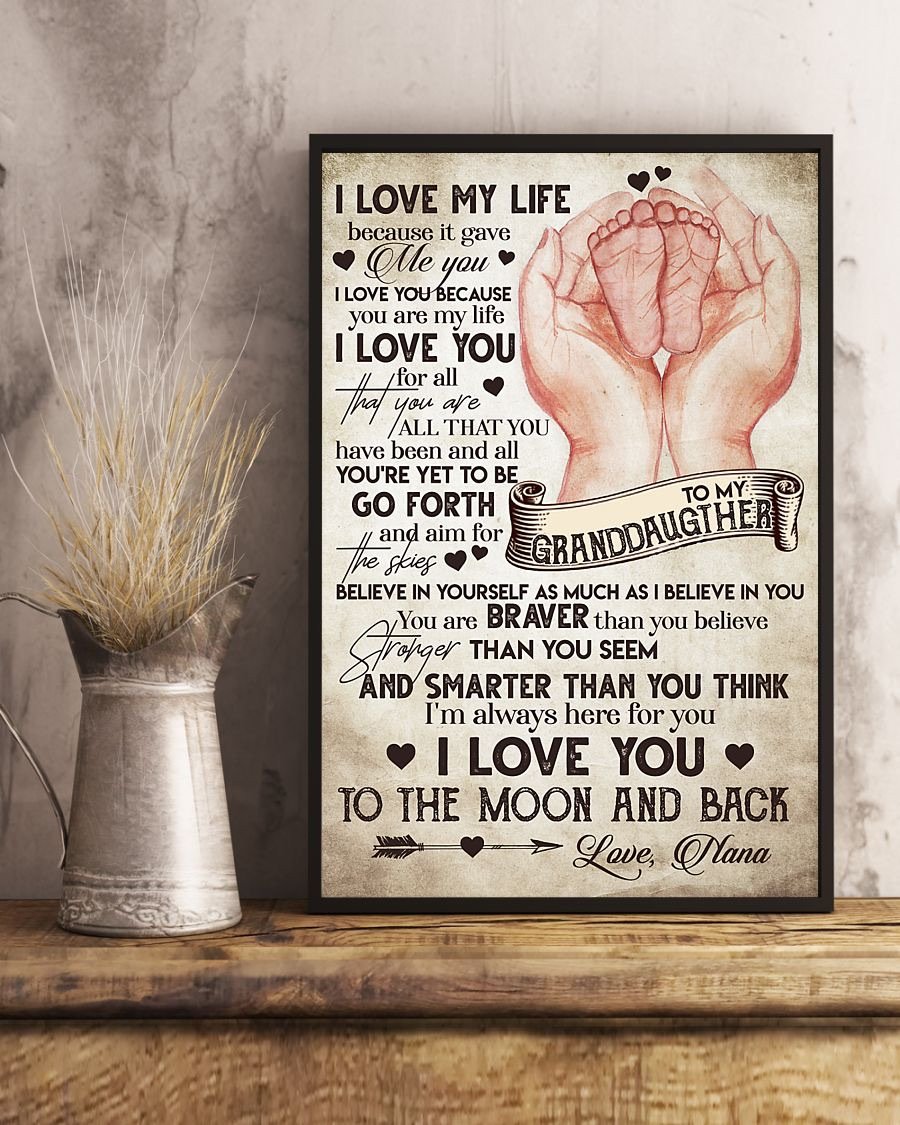 I LOVE MY LIFE
because it gave
Me you
I LOVE YOU BECAUSE
you are my life
I LOVE YOU
for all
that you are
ALL THAT YOU
have been and all
YOU'RE YET TO BE
GO FORTH
and aim for
the skies
TO MY
GRANDDAUGTHER
BELIEVE IN YOURSELF AS MUCH AS I BELIEVE IN YOU
You are BRAVER than you believe
Stronger THAN YOU SEEM
AND SMARTER THAN YOU THINK
I'm always here for you
I LOVE YOU
TO THE MOON AND BACK
Love, Nana